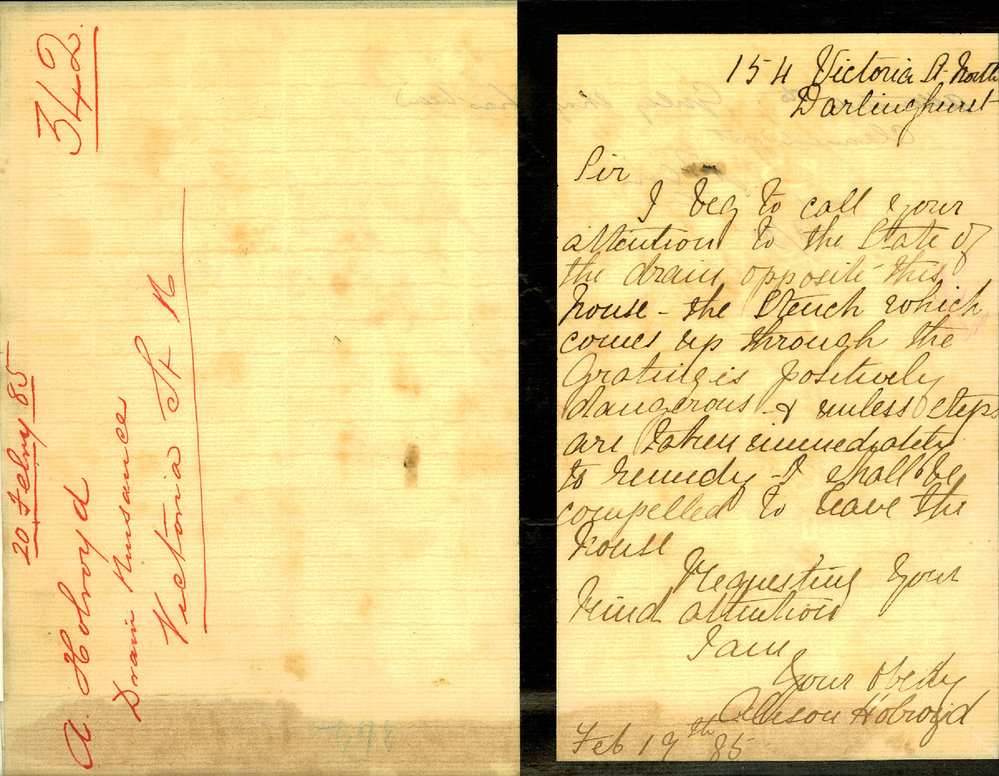 342.
20 Febry 85
A. Holroyd
Drain Nuisance
Victoria St N
154 Victoria St North
Darlinghurst
Sir
I beg to call your
attention to the State of
the drain opposite this
house - the Stench which
comes up through the
Grating is positively
dangerous & unless steps
are taken immediately
to remedy I shall be
compelled to leave the
house
Requesting Your
kind attention
I am
Your Obedly
Holroyd
Feb 19th 85